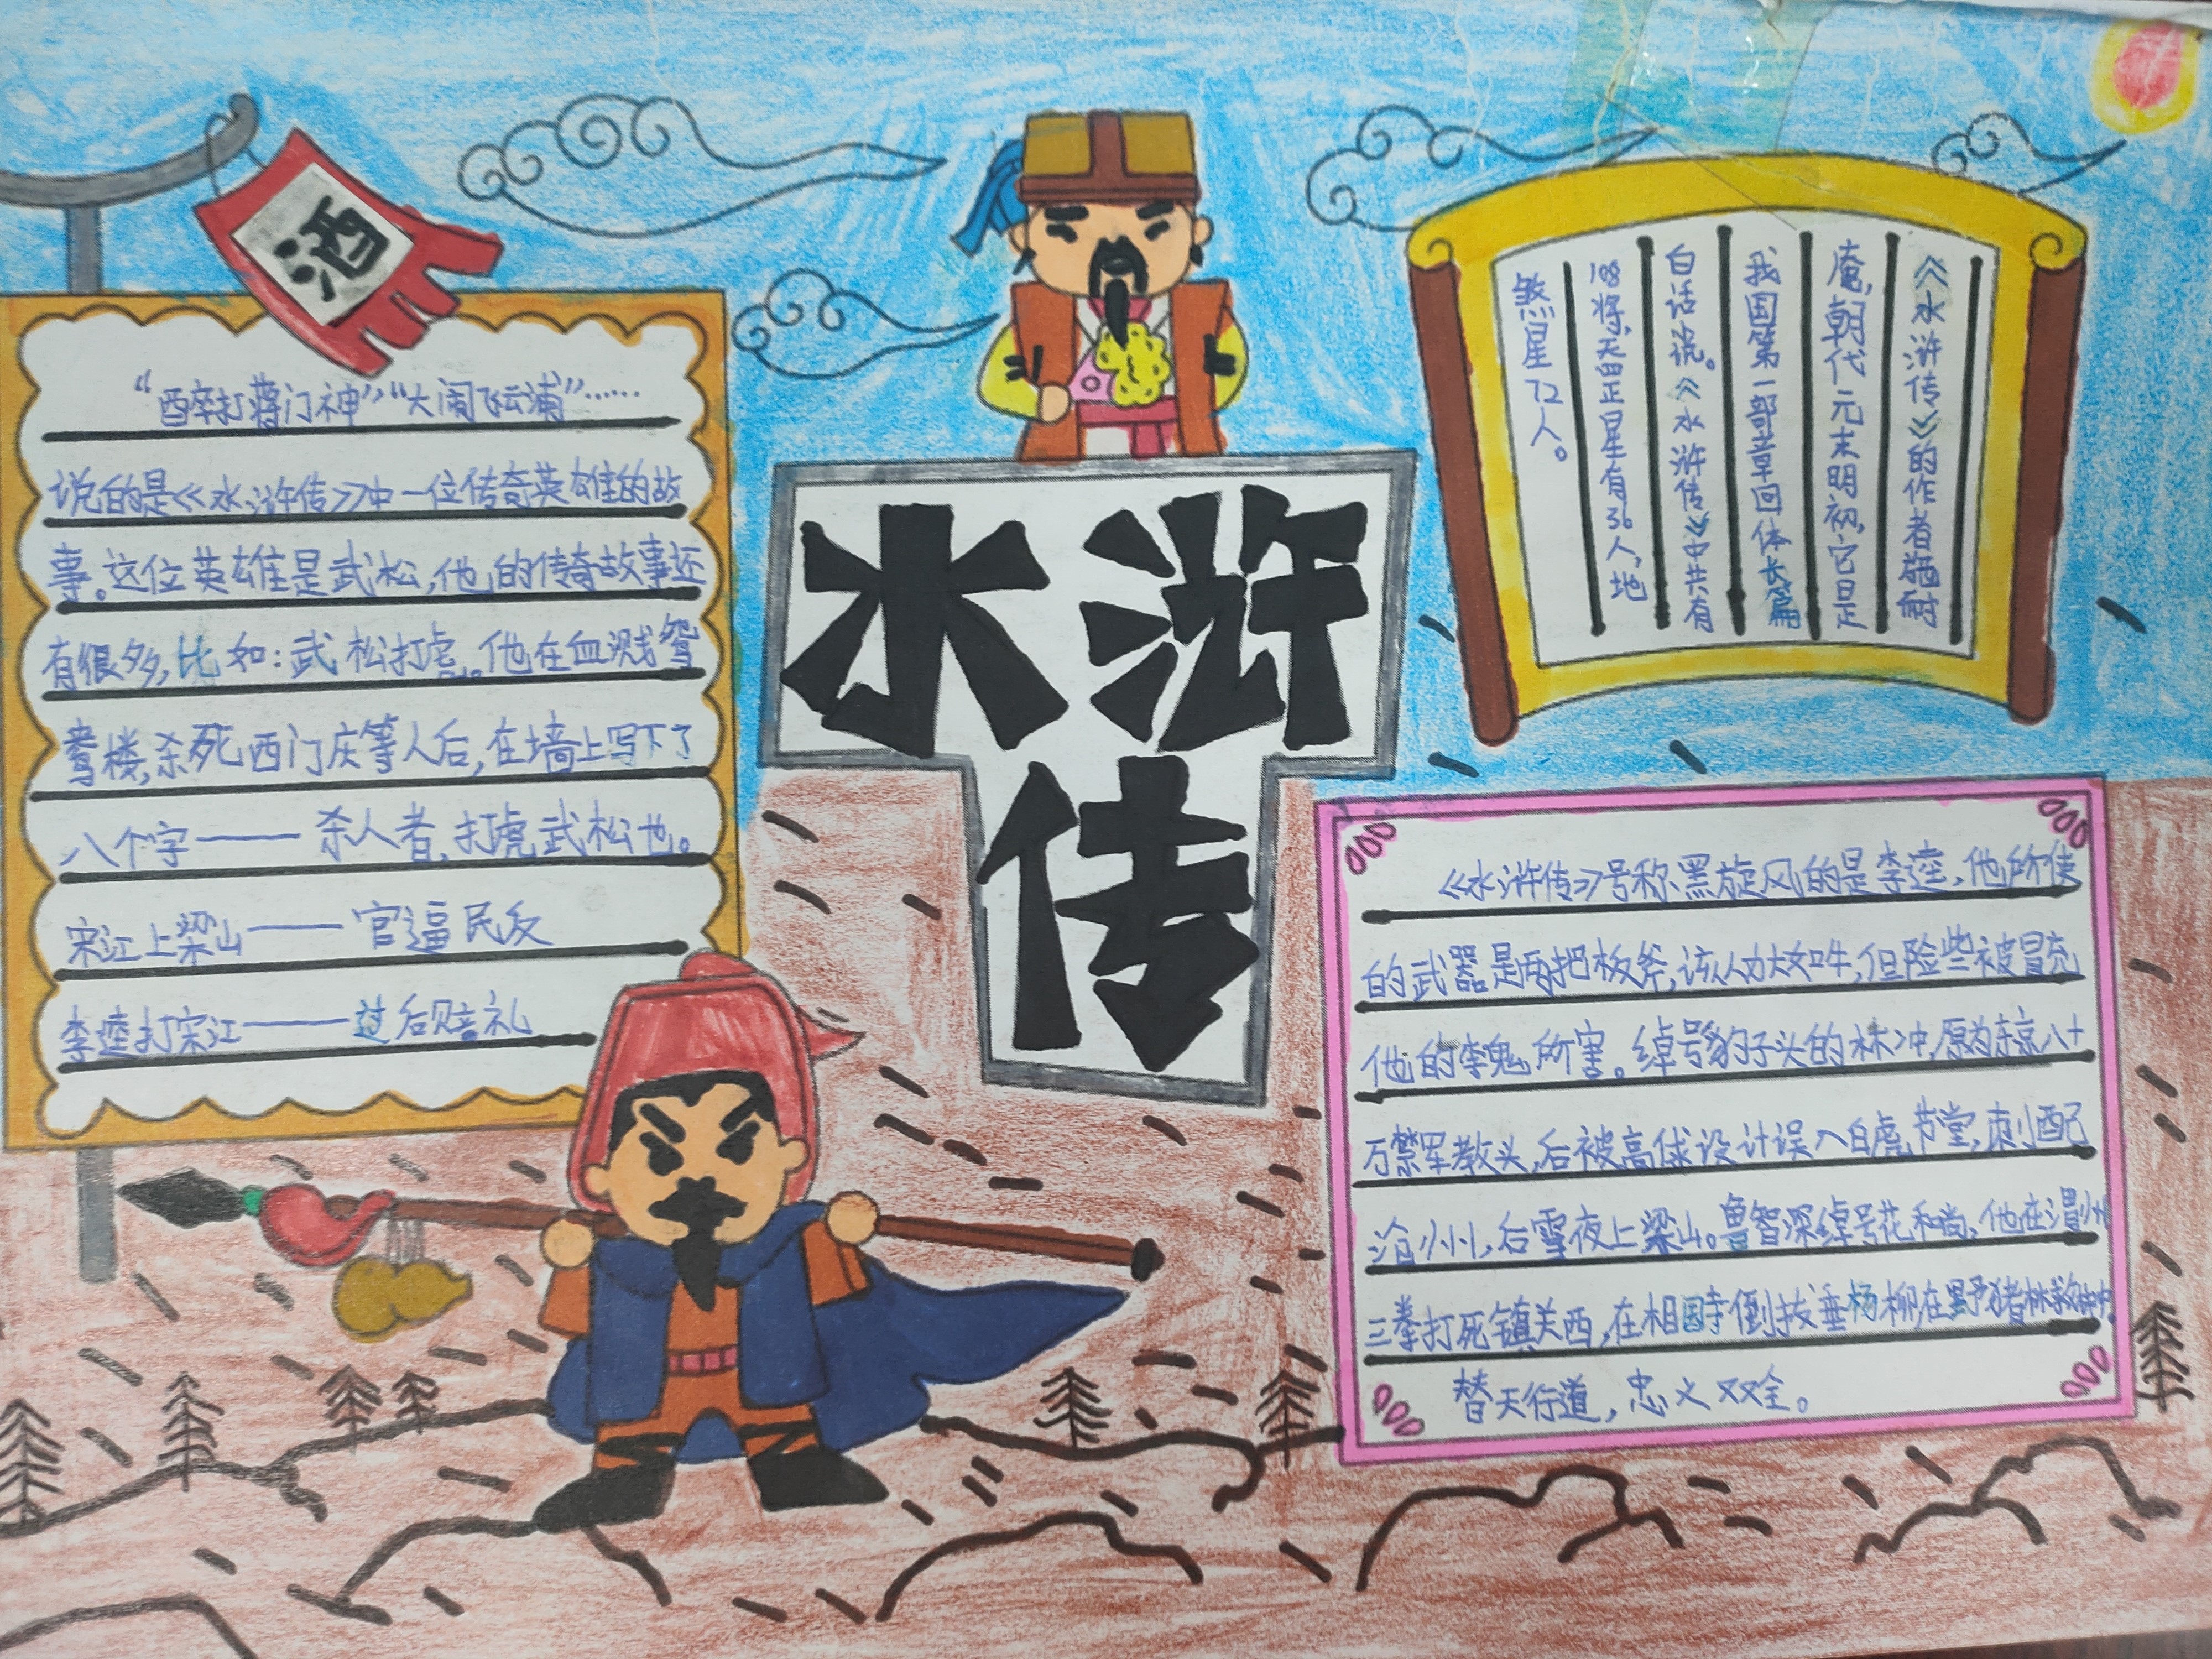 酒
水浒
传
“醉打蒋门神”“大闹飞云浦”……
说的是《水浒传》中一位传奇英雄的故
事。这位英雄是武松,他的传奇故事还
有很多,比如:武松打虎。他在血溅鸳
鸯楼,杀死西门庆等人后,在墙上写下了
八个字——杀人者,打虎武松也。
宋江上梁山——官逼民反
李逵打宋江——过后赔礼
《水浒传》的作者施耐
庵,朝代元末明初,它是
我国第一部章回体长篇
白话说。《水浒传》中共有
108将,天罡正星有36人,地
煞星72人。
《水浒传》号称黑旋风的是李逵,他所使
的武器是两把板斧,该人力大如牛,但险些被冒充
他的李鬼所害。绰号豹子头的林冲,原为东京八十
万禁军教头,后被高俅设计误入白虎节堂,刺配
沧州,后雪夜上梁山。鲁智深绰号花和尚,他在渭州
三拳打死镇关西,在相国寺倒拔垂杨柳,在野猪林救林冲。
替天行道,忠义双全。